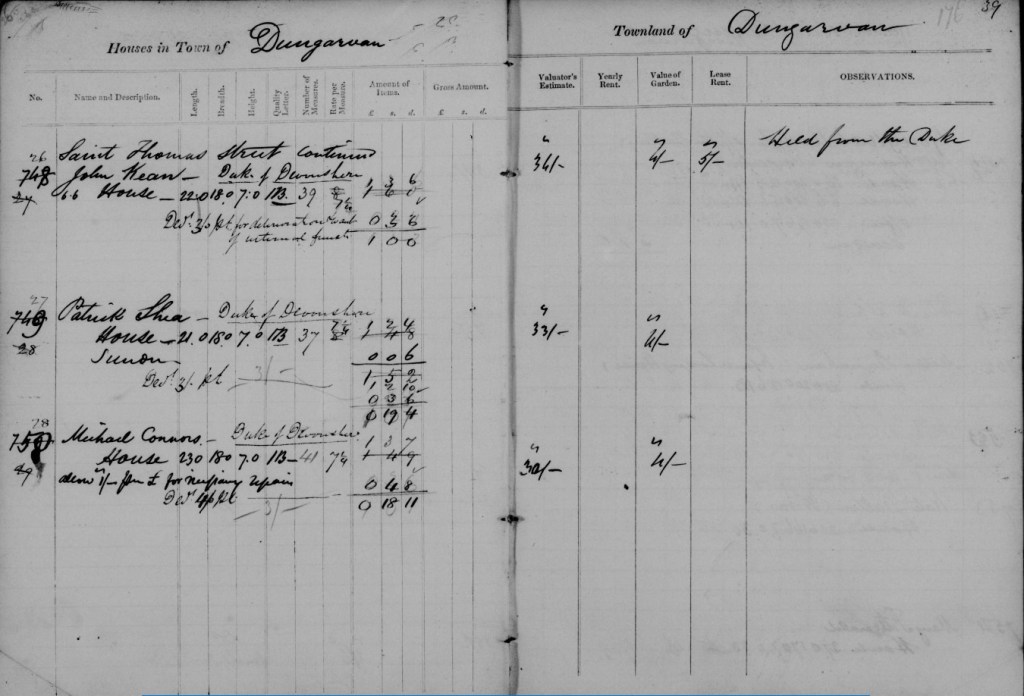 Houses in Town of Dungarvan
Townland of Dungarvan
39
176
No. Name and Description. Length. Breadth. Height. Quality Letter. Number of Measures. Rate per Measure. Amount of Items. £ s. d. Gross Amount. £ s. d.
Valuator's Estimate. Yearly Rent. Value of Garden. Lease Rent. OBSERVATIONS.
26 Saint Thomas Street Continued
748 John Kean — Duke of Devonshire 34/- 4/- 5/- Held from the Duke
27 6.6 House — 22.0 18.0 7.0 1B. 39 7¼
Dedt. 3/0 pt for deterioration want
of internal
1 0 0
27
749 Patrick Shea — Duke of Devonshire 1 2 4 33/- 4/-
28 House — 21.0 18.0 7.0 1B 37 7¼ 1 4 8
0 0 6
Dedt. 3/. pt 3/- 1 5 2
1 2 10
0 3 6
0 19 4
28
750 Michael Connors. — Duke of Devonshire 1 3 7
29 House 23.0 18.0 7.0 1B — 41 7¼ 1 4 9 30/- 4/-
repairs 0 4 8
Dedt. 4/6 pt 3/- 0 18 11